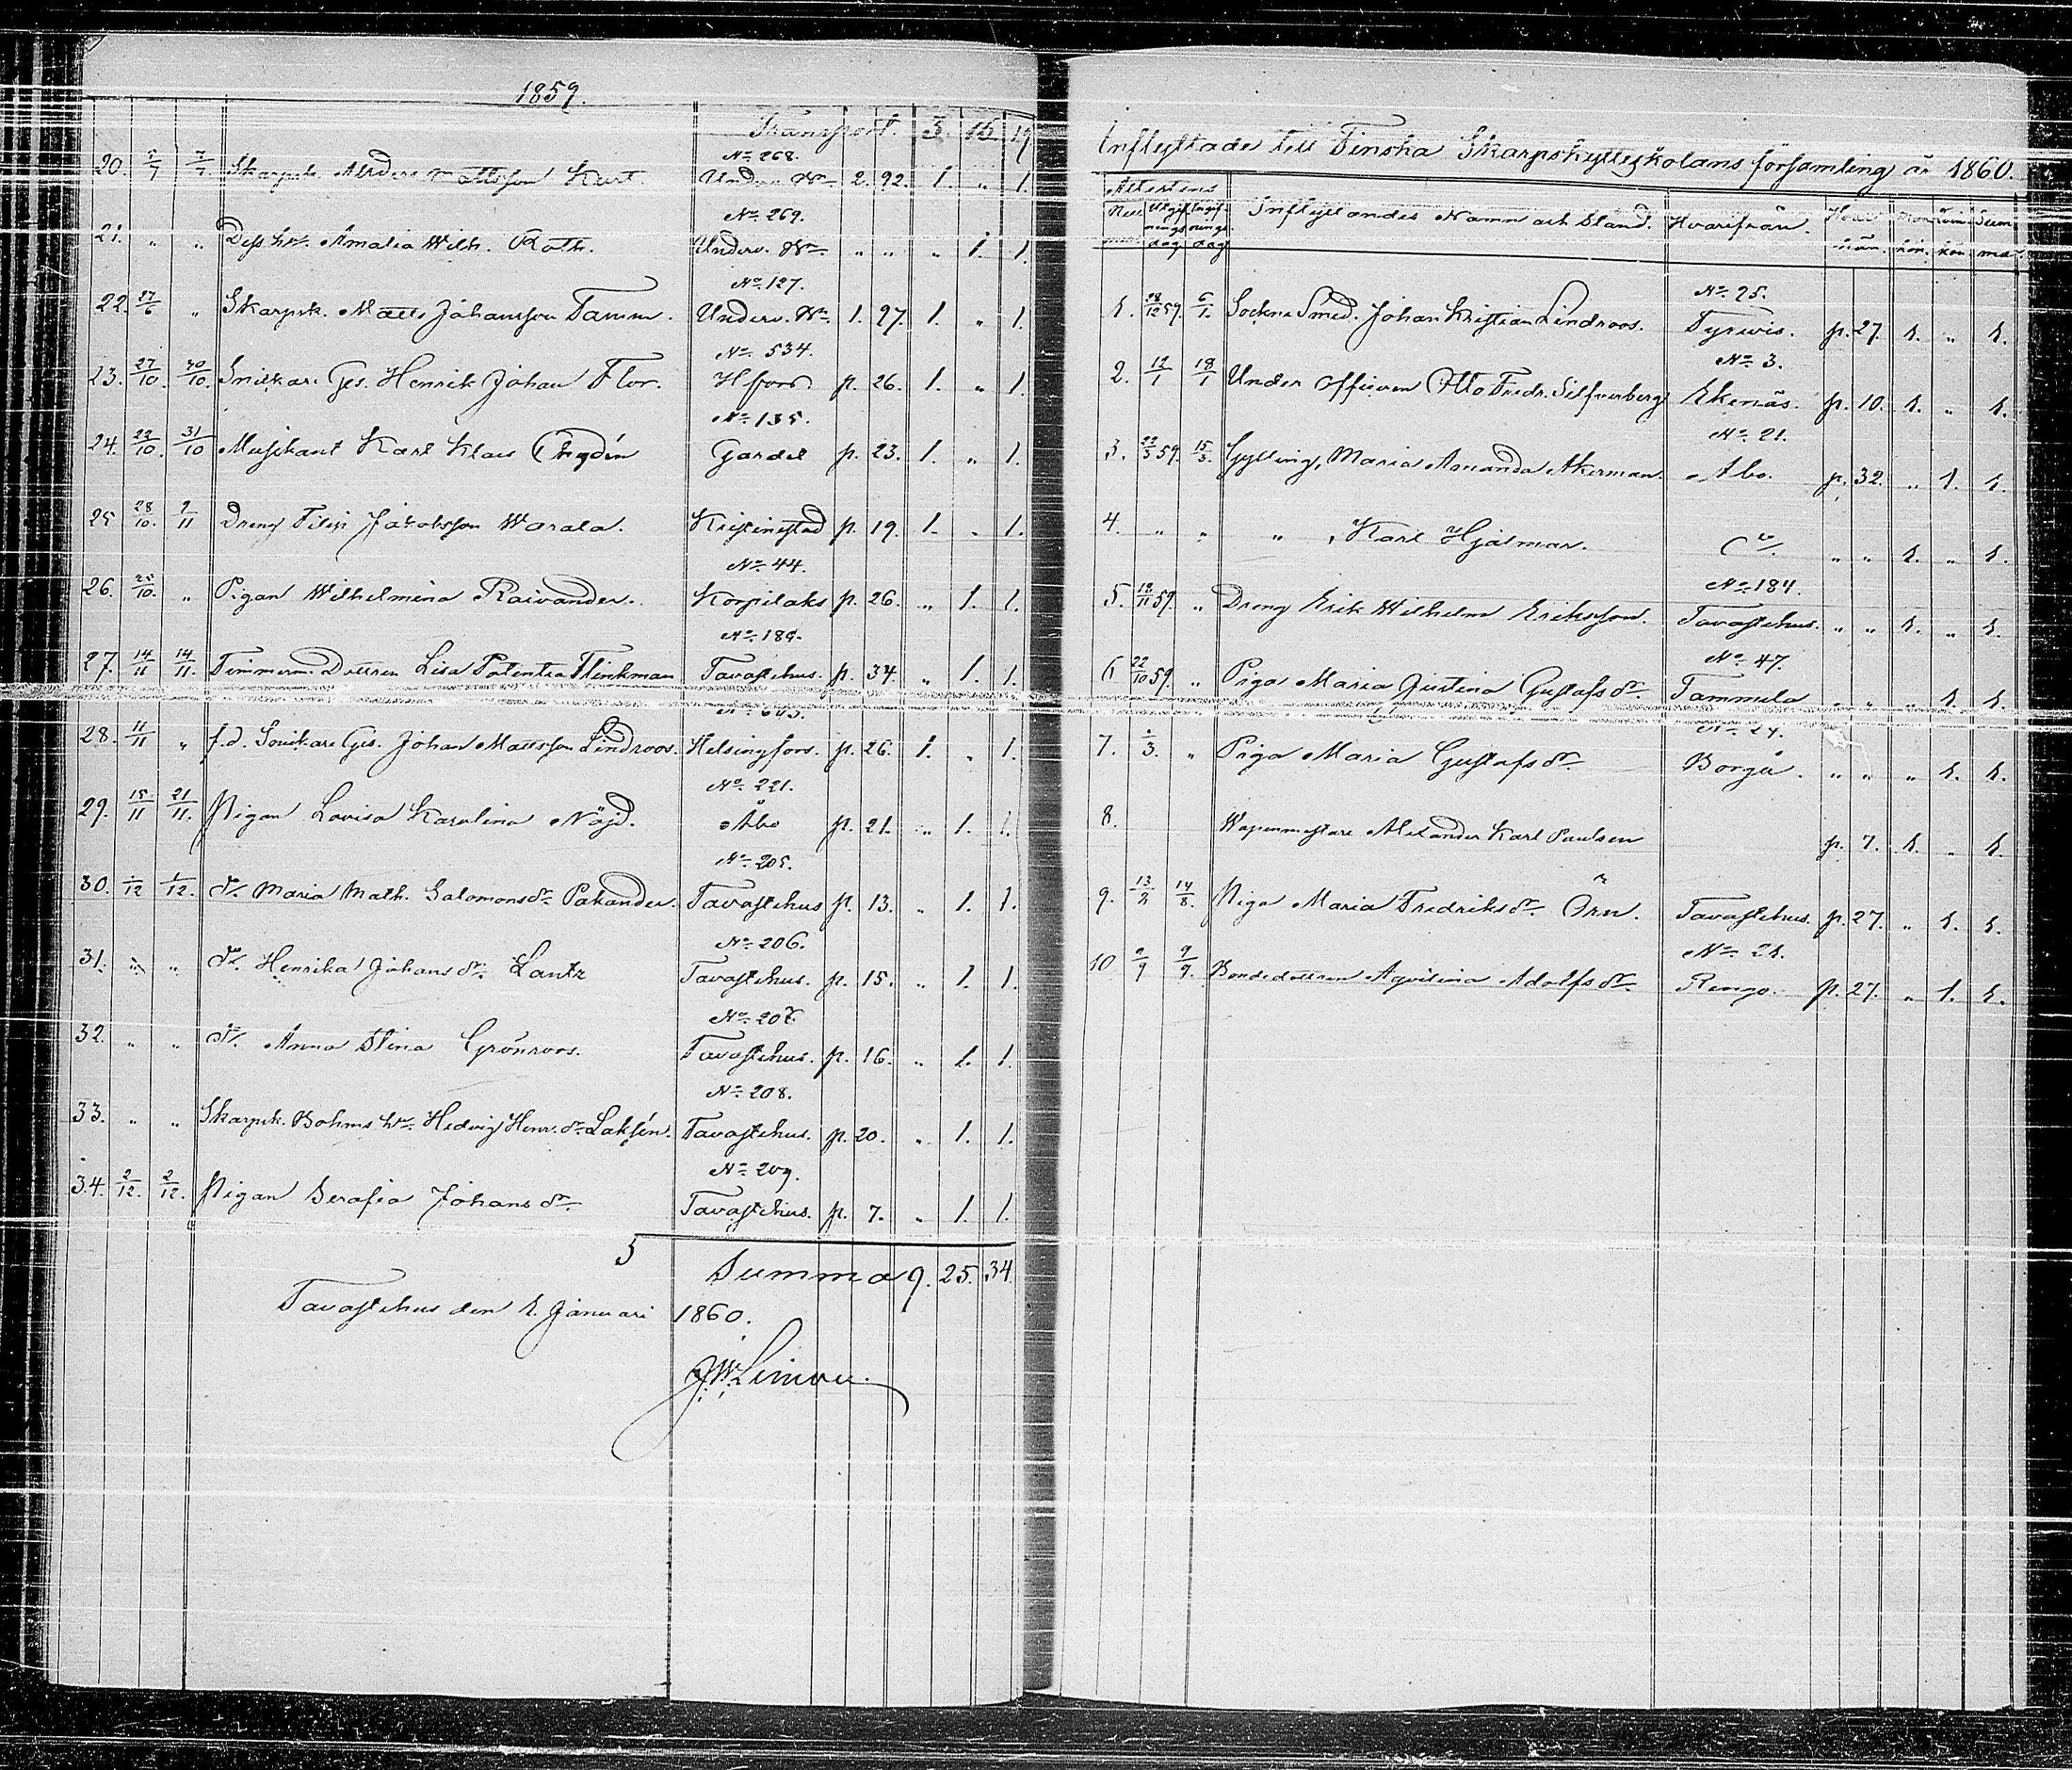 1859.
Transport. 3. 16. 19
No 268.
20. 7/7 Skarpsk. Anders Mattsson Kurt. Underv. Bn 2. 92. 1. " 1.
No 269.
21. " " Dess hu. Amalia Wilh. Roth. Underv. Bn " " " 1. 1.
No 127.
22. 27/6 " Skarpsk. Matts Johansson Tamm. Underv. Bn 1. 97. 1. " 1.
No 534.
23. 27/10. 30/10. Snickare Ges. Henrik Johan Flor. Hfors. p. 26. 1. " 1.
No 135.
24. 22/10. 31/10 Musikant Karl Klaes Gardet p. 23. 1. " 1.
25 28/10. 9/11 Dreng Filip Jakobsson Warala. Kristinestad p. 19. 1. " 1.
No 44.
26. 25/10. " Pigan Wilhelmina Raivander. Korpilaks p. 26. " 1. 1.
No 184.
27. 14/11 14/11. Timmerm. Dottren Lisa Potentia Flinkman Tavastehus. p. 34. " 1. 1.
No 643.
28. 11/11 " f.d. Snickare Ges. Johan Mattsson Lindroos. Helsingfors. p. 26. 1. " 1.
No 221.
29. 15/11 21/11. Pigan Lovisa Karolina Nöjd. Åbo p. 21. " 1. 1.
No 205.
30. 1/12 1/12. do Maria Math. Salomons dr Pakander. Tavastehus p. 13. " 1. 1.
No 206.
31. " " do Henrika Johans dr Lantz Tavastehus. p. 15. " 1. 1.
No 207.
32. " " do Anna Stina Grönroos. Tavastehus. p. 16. " 1. 1.
No 208.
33. " " Skarpsk. Bohms hu Hedvig Henr. dr Laksén. Tavastehus. p. 20. " 1. 1.
No 209.
34. 2/12. 2/12. Pigan Serafia Johans dr Tavastehus. p. 7. " 1. 1.
Summa 9. 25. 34.
Tavastehus den 1. Januari 1860.
Inflyttade till Finska Skarpskytteskolans församling år 1860.
Attestens
Num Utgifnings dag Ingifnings dag Inflyttandes Namn och Stånd. Hvarifrån. Mankön. Qvinkön. Summa.
No 25.
1. 28/12 59. 6/1. Sockne Smed. Johan Kristian Lindroos. Tyrwis. p. 27. 1. " 1.
No 3.
2. 12/1 18/1 Under officeren Otto Fredr. Silfverberg Ekenäs. p. 10. 1. " 1.
No 21.
3. 22/3 59. 15/3. Gylling, Maria Amanda Åkerman. Åbo. p. 32. " 1. 1.
4. " " " , Karl Hjalmar. " " 1. " 1.
No 184.
5. 18/11 59. " Dreng Erik Wilhelm Eriksson. Tavastehus. " " 1. " 1.
No 47.
6 22/10 59. " Piga Maria Justina Gustafs dr Tammela " " " 1. 1.
No 24.
7. /3. " Piga Maria Gustafs dr Borgå. " " " 1. 1.
8. Wapenmästare Alexander Karl Paulsen p. 7. 1. " 1.
9. 13/2 14/8. Piga Maria Fredriks dr Örn. Tavastehus. p. 27. " 1. 1.
No 21.
10 9/9 9/9. Bondedottren Aqvilina Adolfs dr Rengo. p. 27. " 1. 1.